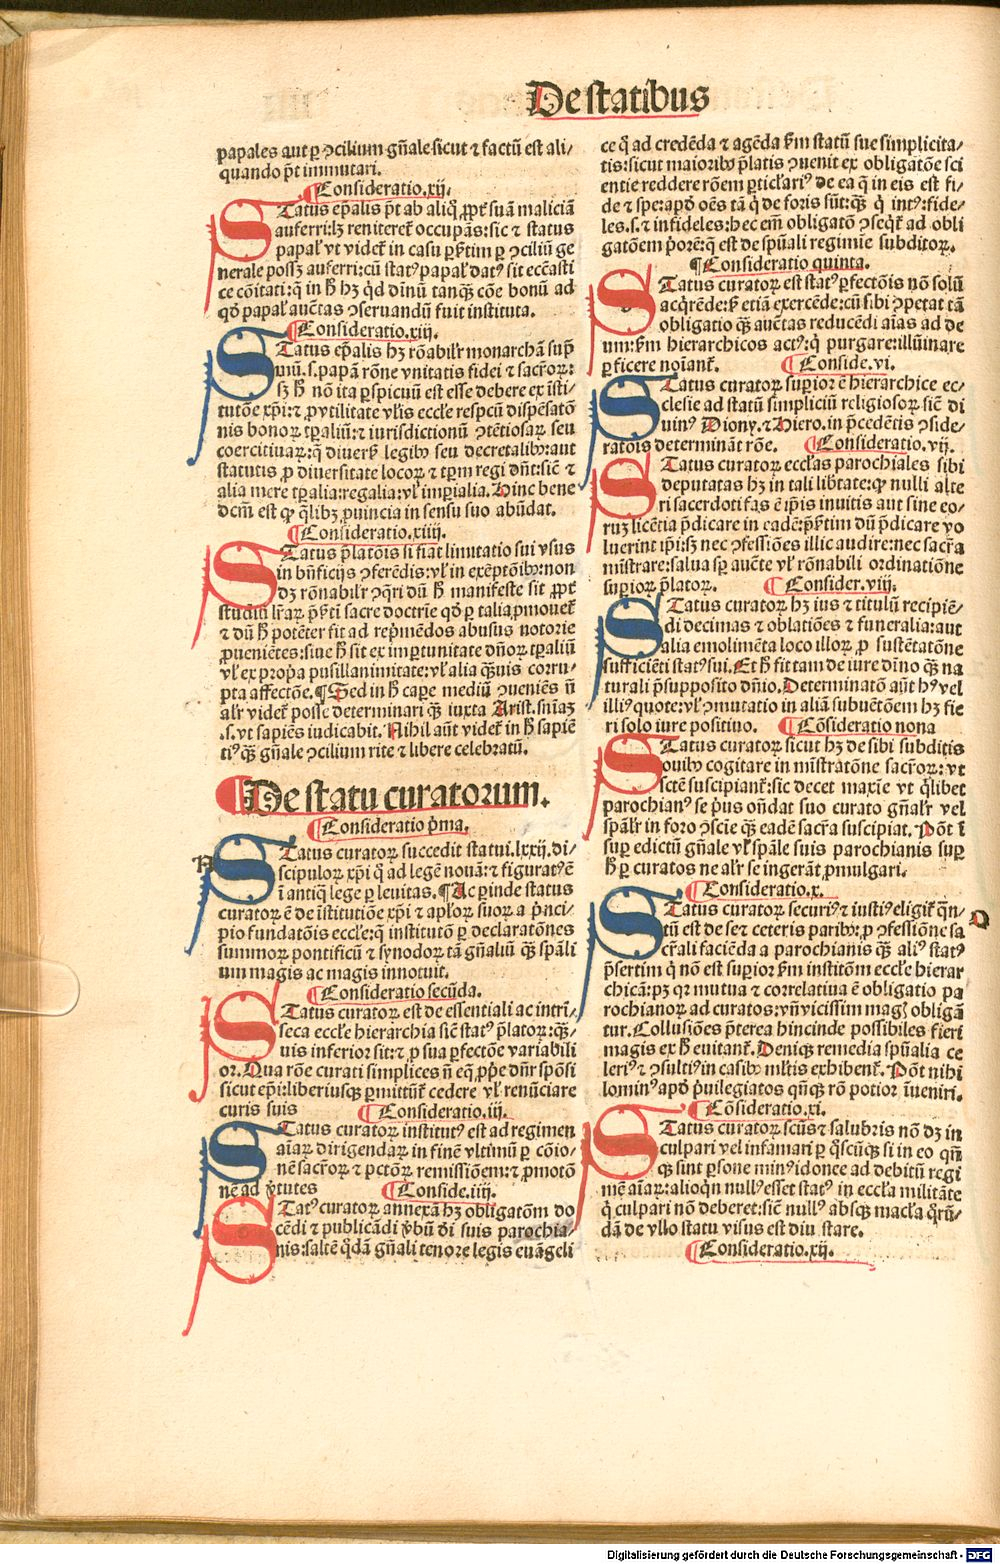 De statibus
papales aut ꝑ ꝯcilium gn̄ale sicut ⁊ factū est ali/
quando pōt immutari.
¶ Consideratio.xij.
STatus ep̄alis pōt ab aliq̄ ꝓpt̄ suā maliciā
auferri:lꝫ reniteret᷑ occupās:sic ⁊ status
papaƚ vt videt᷑ in casu p̄rtim ꝑ ꝯciliū ge
nerale possꝫ auferri:cū statꝰ papaƚ datꝰ sit ecc̄asti
ce cōitati:q̄ in h̄ hꝫ q̇d dīnū tanqꝫ cōe bonū ad
qd̄ papaƚ auctas ꝯseruandū fuit instituta.
¶ Consideratio.xiij.
STatus ep̄alis hꝫ rōabilr̄ monarchā sup̄
mū.s.papā rōne vnitatis fidei ⁊ sacr̄oꝝ:
sꝫ h̄ nō ita ꝑspicuū est esse debere ex īsti/
tutōe xp̄i:⁊ ꝓ vtilitate vƚis eccƚe respcū dispēsatō
nis bonoꝝ tꝑaliū:⁊ iurisdictionū ꝯtētiosaꝝ seu
coercitiuaꝝ:q̄ diuers̄ legibꝰ seu decretalibꝰ:aut
statutis ꝓ diuersitate locoꝝ ⁊ tꝑm regi dn̄t:sic̄ ⁊
alia mere tꝑalia:regalia:vƚ imꝑialia.Hinc bene
dcm̄ est qꝙ q̄libꝫ ꝓuincia in sensu suo abūdat.
¶ Consideratio.xiiij.
STatus p̄latōis si fiat limitatio sui vsus
in bn̄ficijs ꝯferēdis:vƚ in exēptōibꝰ:non
dꝫ rōnabilr̄ ꝯq̄ri dū h̄ manifeste sit ꝓpt̄
studiū lr̄aꝝ p̄srti sacre doctrīe qd̄ ꝑ talia ꝓmouet᷑
⁊ dū h̄ potēter fit ad rep̄mēdos abusus notorie
ꝓuenientes:siue h̄ sit ex imꝑtunitate dn̄oꝝ tꝑaliū
vƚ ex ꝓp̄a pusillanimitate:vƚ alia qͣuis corru/
pta affectōe.¶ Sed in h̄ caꝑe mediū ꝯueniēs n̄
alr̄ videt᷑ posse determinari qꝫ iuxta Arist.sn̄iaꝫ
.s.vt sapiēs iudicabit.Nihil aūt videt᷑ in h̄ sapiē
tiꝰ qꝫ gn̄ale ꝯcilium rite ⁊ libere celebratū.
¶ De statu curatorum.
¶ Consideratio p̄ma.
A
STatus curatoꝝ succedit statui.lxxij.di/
scipuloꝝ xp̄i q̇ ad legē nouā:⁊ figuratꝰ ē
ī antiq̄ lege ꝑ leuitas.¶ Ac ꝑinde status
curatoꝝ ē de īstitutiōe xp̄i ⁊ apƚoꝝ suoꝝ a p̄nci/
pio fundatōis eccƚe:q̄ institutō ꝑ declaratōnes
summoꝝ pontificū ⁊ synodoꝝ tā gn̄aliū qꝫ sp̄ali
um magis ac magis innotuit.
¶ Consideratio secūda.
STatus curatoꝝ est de essentiali ac intrī/
seca eccƚe hierarchia sic̄ statꝰ p̄latoꝝ:qͣꝫ/
uis inferior sit:⁊ ꝓ sua ꝑfectōe variabili
or.Qua rōne curati simplices n̄ eq̄ ꝓpe dn̄r sponsi
sicut ep̄i:liberiusqꝫ ꝑmittūt᷑ cedere vƚ renūciare
curis suis
¶ Consideratio.iij.
STatus curatoꝝ institutꝰ est ad regimen
aīaꝝ dirigendaꝝ in finē vltimū ꝑ cōio/
nē sacr̄oꝝ ⁊ pctōꝝ remissiōem:⁊ ꝓmotō
nē ad v̄tutes
¶ Conside.iiij.
STatꝰ curatoꝝ annexā hꝫ obligatōm do
cēdi ⁊ publicādi v̄bū dī suis parochia/
nis:saltē q̇dā gn̄ali tenore legis euāgeli
ce q̇ ad credēda ⁊ agēda ẜm statū sue simplicita/
tis:sicut maioribꝰ p̄latis ꝯuenit ex obligatōe sci
entie reddere rōem ꝑticƚariꝰ de ea q̄ in eis est fi/
de ⁊ spe:apd̄ oēs tā q̇ de foris sūt:qꝫ q̇ intꝰ:fide/
les.s.⁊ infideles:hec em̄ obligatō ꝯseqt᷑ ad obli
gatōem p̄orē:q̄ est de sp̄uali regimie subditoꝝ.
¶ Consideratio quinta.
STatus curatoꝝ est statꝰ ꝑfectōis nō solū
acq̄rēde:s̄ etiā exercēde:cū sibi ꝯpetat tā
obligatio qꝫ auctas reducēdi aīas ad de
um:ẜm hierarchicos actꝰ:q̇ purgare:illūinare
ꝑficere noīant᷑.
¶ Conside.vi.
STatus curatoꝝ suꝑior ē hierarchice ec/
clesie ad statū simpliciū religiosoꝝ sic̄ di
uinꝰ Diony.⁊ Hiero.in p̄cedētis ꝯside/
ratōis determināt rōe.
¶ Consideratio.vij.
STatus curatoꝝ eccƚas parochiales sibi
deputatas hꝫ in tali lib̄tate:qꝙ nulli alte
ri sacerdoti fas ē ip̄is inuitis aut sine eo/
ruꝫ licētia p̄dicare in eadē:p̄srtim dū p̄dicare vo
luerint ip̄i:sꝫ nec ꝯfessiōes illic audire:nec sacr̄a
mīstrare:salua sꝑ aucte vƚ rōnabili ordinatiōne
suꝑioꝝ p̄latoꝝ.
¶ Consider.viij.
STatus curatoꝝ hꝫ ius ⁊ titulū recipiē/
di decimas ⁊ oblatiōes ⁊ funeralia:aut
alia emolimēta loco illoꝝ ꝓ sustētatōne
sufficiēti statꝰ sui.Et h̄ fit tam de iure dīno qꝫ na
turali p̄supposito dn̄io.Determinatō aūt hꝰ vel
illiꝰ quote:vƚ ꝯmutatio in aliā subuētōem hꝫ fie
ri solo iure positiuo.
¶ Cōsideratio nona
STatus curatoꝝ sicut hꝫ de sibi subditis
ouibꝰ cogitare in mīstratōne sacr̄oꝝ:vt
sctē suscipiant᷑:sic decet maxie vt q̄libet
parochianꝰ se p̄us on̄dat suo curato gn̄alr̄ vel
sp̄alr̄ in foro ꝯscie qꝫ eadē sacr̄a suscipiat.Pōt ī
suꝑ edictū gn̄ale vƚ sp̄ale suis parochianis suꝑ
h̄ ꝑ curatos ne alr̄ se ingerāt ꝓmulgari.
¶ Consideratio.x.
D
STatus curatoꝝ securiꝰ ⁊ iustiꝰ eligit᷑ qn̄/
tū est de se ⁊ ceteris paribꝰ:ꝓ ꝯfessiōne sa
cr̄ali faciēda a parochianis qꝫ aliꝰ statꝰ
p̄sertim q̇ nō est suꝑior ẜm institōm eccƚe hierar
chicā:pꝫ qꝛ mutua ⁊ correlatiua ē obligatio pa
rochianoꝝ ad curatos:vn̄ vicissim magꝭ obligā
tur.Collusiōes p̄terea hincinde possibiles fieri
magis ex h̄ euitant᷑.Deniqꝫ remedia sp̄ualia ce
leriꝰ ⁊ ꝯsultiꝰ in casibꝰ mƚtis exhibent᷑.Pōt nihi
lominꝰ apd̄ p̄uilegiatos qn̄qꝫ rō potior īueniri.
¶ Cōsideratio.xi.
STatus curatoꝝ scūs ⁊ salubris nō dꝫ in
culpari vel infamari ꝑ q̇scūqꝫ si in eo qn̄
qꝫ sint ꝑsone minꝰ idonee ad debitū regi
mē aīaꝝ:alioqn̄ nullꝰ esset statꝰ in eccƚa militāte
q̇ culpari nō deberet:sic̄ nullꝰ absqꝫ macƚa q̄rū/
dā de vllo statu visus est diu stare.
¶ Consideratio.xij.
Digitalisierung gefördert durch die Deutsche Forschungsgemeinschaft - DFG